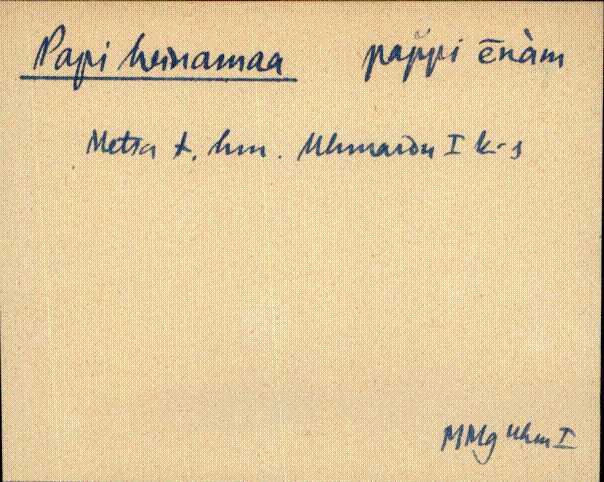 Papi heinamaa pap̆pi ēnàm
Metsa t. hm. Uhmardu I k-s
MMg Uhm I